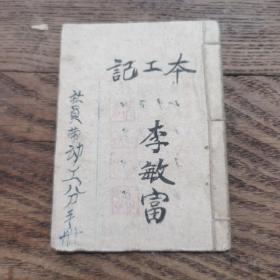 本工記
李敏富
社員劳动工分手册